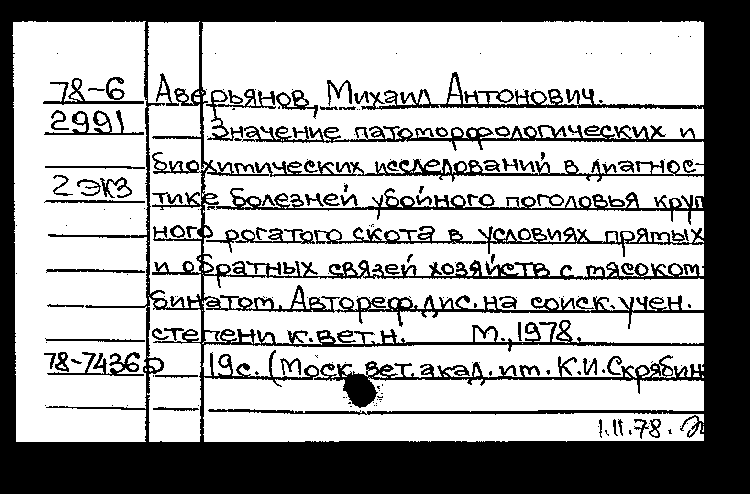 78-6 Аверьянов, Михаил Антонович.
2991 Значение патоморфологических и
биохимических исследований в диагнос-
2 экз тике болезней убойного поголовья круп
ного рогатого скота в условиях прямых
и обратных связей хозяйств с мясоком
бинатом. Автореф. дис. на соиск. учен.
степени к.вет.н. М., 1978.
78-7436 19с. (Моск. вет. акад. им. К.И. Скрябин
1.11.78.